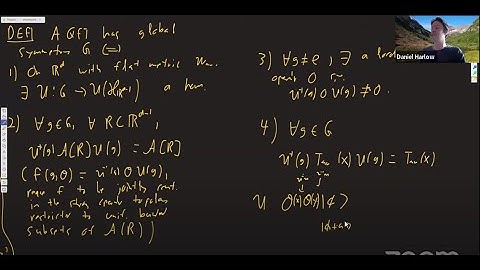 DEF| A QFT has global
symmetry G if
1) On ℝᵈ with flat metric
∃ U : G → U(H_{ℝ^{d-1}}) a hom.
2) ∀g∈G, ∀ R⊂ℝ^{d-1},
U†(g) A[R] U(g) = A[R]
(f(g,O) = U†(g) O U(g),
f to be jointly cont.
in the strong operator topology
restricted to unif. bounded
subsets of A[R])
3) ∀g≠e, ∃ a local
operator O s.t.
U†(g) O U(g) ≠ O.
4) ∀g∈G
U†(g) T_{μν}(x) U(g) = T_{μν}(x)
U O(x) O(y) | φ >
Daniel Harlow
zoom